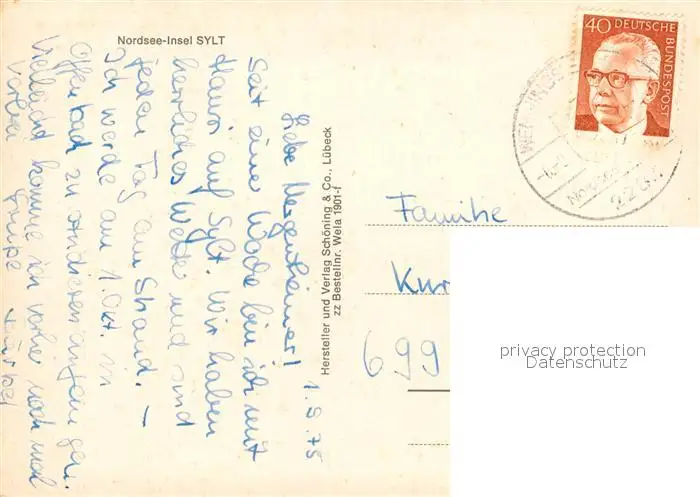 Nordsee-Insel SYLT
1.9.75
Liebe Mergentheimer!
Seit einer Woche bin ich mit
Hansi auf Sylt. Wir haben
herrliches Wetter und sind
jeden Tag am Strand. –
Ich werde am 1. Okt. in
Offenbach zu studieren anfangen.
Vielleicht komme ich vorher noch mal
vorbei
Hersteller und Verlag Schöning & Co., Lübeck
zz Bestellnr. Wela 1901-f
40 DEUTSCHE BUNDESPOST
Familie
Kur
699
privacy protection
Datenschutz